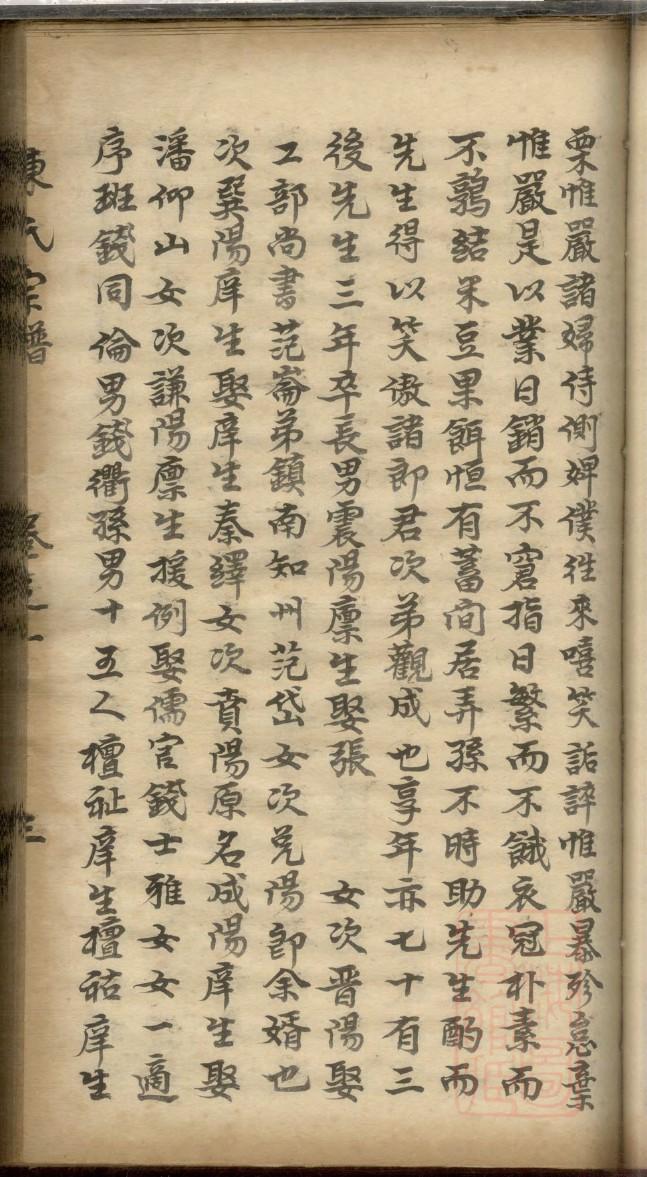 栗惟嚴諸婦侍側婢僕往來嘻笑詬誶惟嚴暴殄怠棄
惟嚴是以業日銷而不窘指日繁而不饑衣冠朴素而
不鶉結米豆果餌恒有蓄間居弄孫不時助先生酌而
先生得以笑傲諸郎君次弟觀成也享年亦七十有三
後先生三年卒長男震陽廪生娶張 女次晋陽娶
工部尚書范崙弟鎮南知州范岱女次兑陽即余婿也
次巽陽庠生娶庠生秦繹女次賁陽原名咸陽庠生娶
潘仰山女次謙陽廪生援例娶儒官錢士雅女女一適
序班錢同倫男錢衢孫男十五人檀祉庠生檀祜庠生
陳氏宗譜 卷之一 三